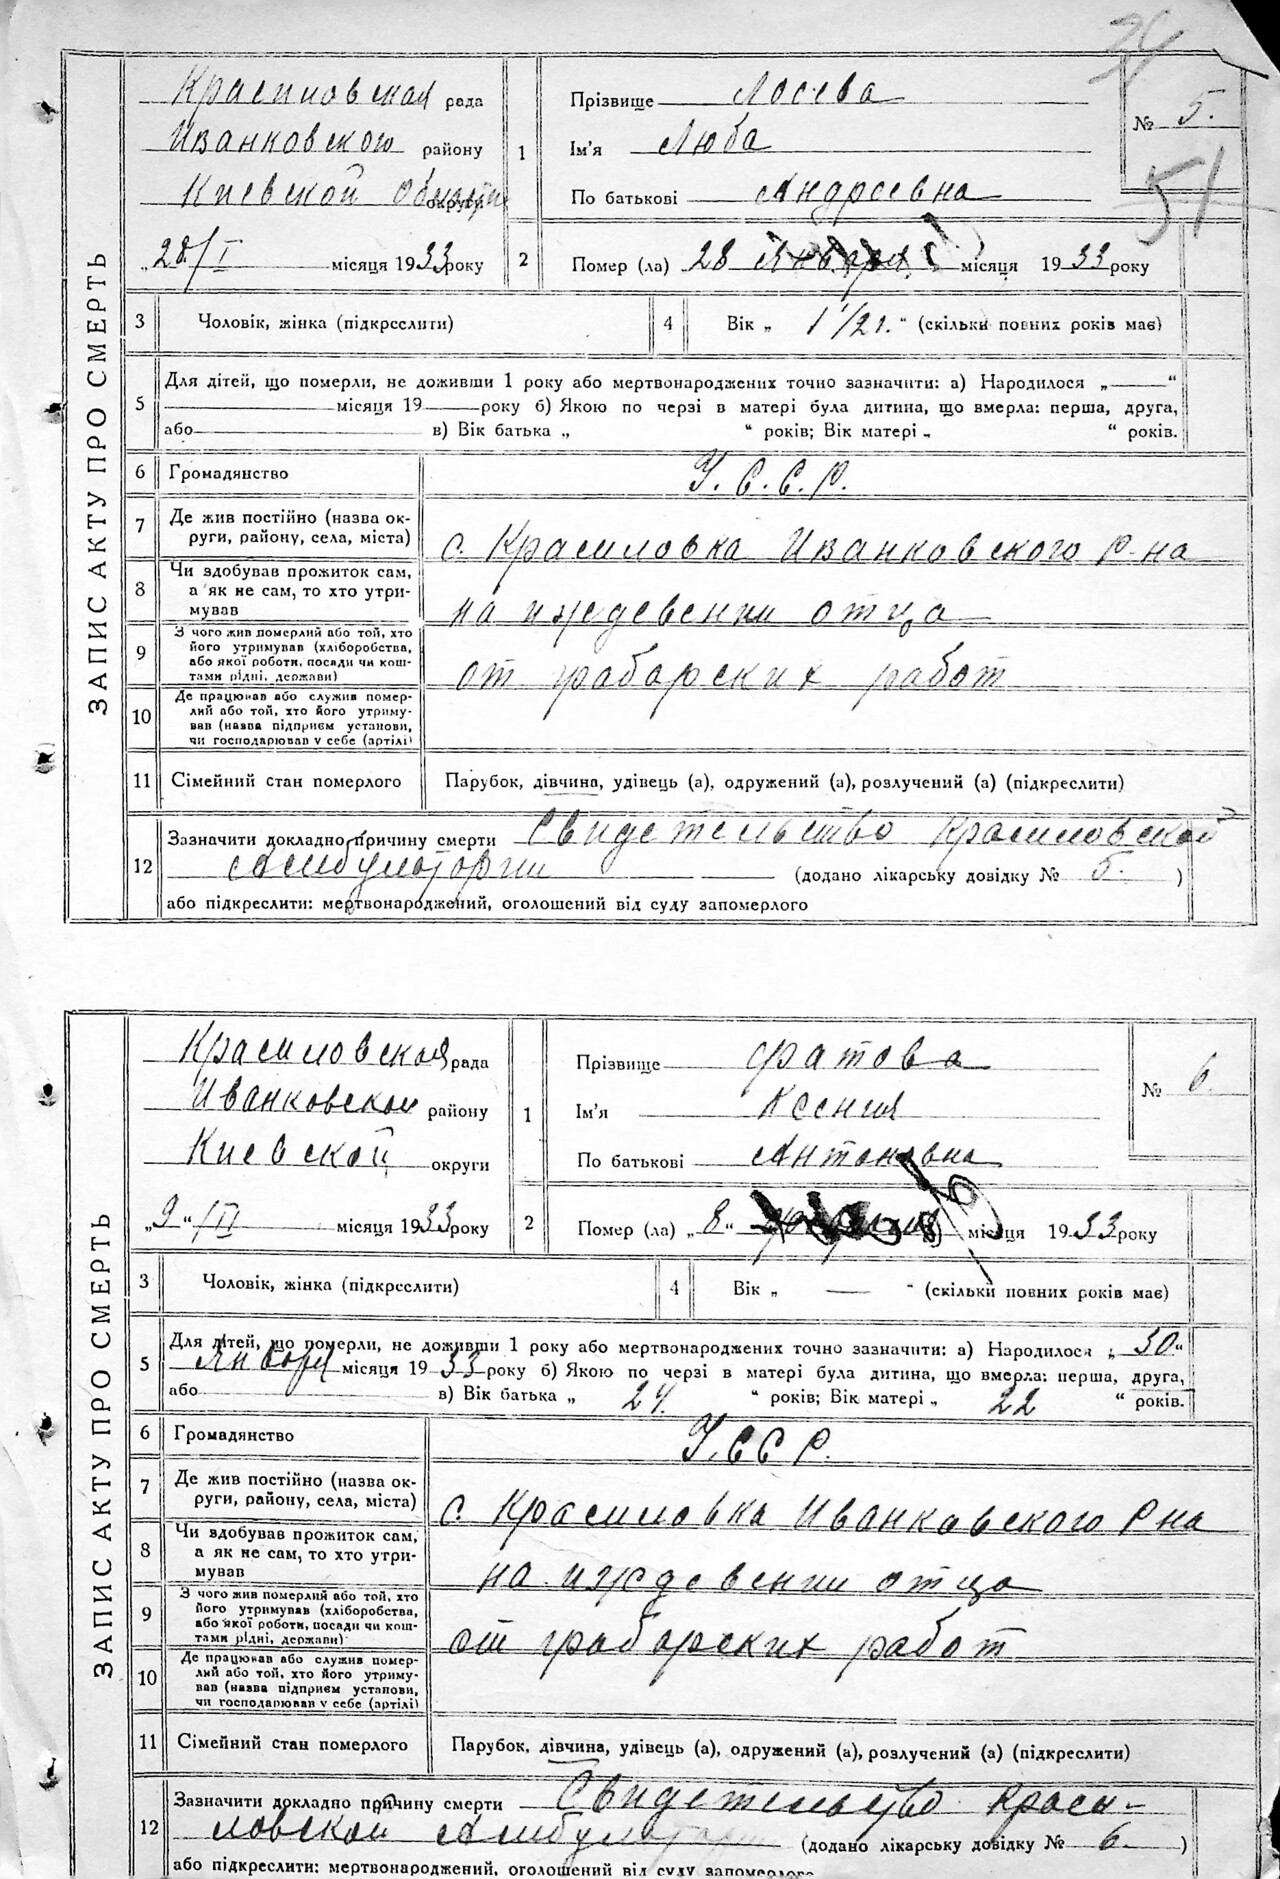 24
ЗАПИС АКТУ ПРО СМЕРТЬ
Красиловская рада
Иванковского району
Киевской области округи
„28/I місяця 1933 року
1 Прізвище Лосева
Ім'я Люба
По батькові Андреевна
№ 5.
51
2 Помер (ла) 28 января місяця 1933 року
3 Чоловік, жінка (підкреслити)
4 Вік „ 1 1/2 г. “ (скільки повних років має)
5 Для дітей, що померли, не доживши 1 року або мертвонароджених точно зазначити: а) Народилося „——“
місяця 19——року б) Якою по черзі в матері була дитина, що вмерла: перша, друга,
або в) Вік батька „ “ років; Вік матері „ “ років.
6 Громадянство У.С.С.Р.
7 Де жив постійно (назва округи, району, села, міста) с. Красиловка Иванковского р-на
8 Чи здобував прожиток сам,
а як не сам, то хто утри-
мував на иждевении отца
9 З чого жив померлий або той, хто
його утримував (хліборобства,
або якої роботи, посади чи кош-
тами рідні, держави) от грабарских работ
10 Де працював або служив помер-
лий або той, хто його утриму-
вав (назва підприєм установи,
чи господарював у себе (артілі)
11 Сімейний стан померлого Парубок, дівчина, удівець (а), одружений (а), розлучений (а) (підкреслити)
12 Зазначити докладно причину смерти Свидетельство Красиловской
Амбулатории (додано лікарську довідку № 5. )
або підкреслити: мертвонароджений, оголошений від суду запомерлого
ЗАПИС АКТУ ПРО СМЕРТЬ
Красиловская рада
Иванковской району
Киевской округи
„9“/II місяця 1933 року
1 Прізвище Фатова
Ім'я Ксения
По батькові Антоновна
№ 6.
2 Помер (ла) „8“ місяця 1933 року
3 Чоловік, жінка (підкреслити)
4 Вік „ —— “ (скільки повних років має)
5 Для дітей, що померли, не доживши 1 року або мертвонароджених точно зазначити: а) Народилося „30“
Января місяця 1933 року б) Якою по черзі в матері була дитина, що вмерла: перша, друга,
або в) Вік батька „ 24. “ років; Вік матері „ 22 “ років.
6 Громадянство У.ССР.
7 Де жив постійно (назва округи, району, села, міста) с. Красиловка Иванковского р на
8 Чи здобував прожиток сам,
а як не сам, то хто утри-
мував на иждевении отца
9 З чого жив померлий або той, хто
його утримував (хліборобства,
або якої роботи, посади чи кош-
тами рідні, держави) от грабарских работ
10 Де працював або служив помер-
лий або той, хто його утриму-
вав (назва підприєм установи,
чи господарював у себе (артілі)
11 Сімейний стан померлого Парубок, дівчина, удівець (а), одружений (а), розлучений (а) (підкреслити)
12 Зазначити докладно причину смерти Свидетельство Краси-
ловской Амбулатории (додано лікарську довідку № 6. )
або підкреслити: мертвонароджений, оголошений від суду запомерлого